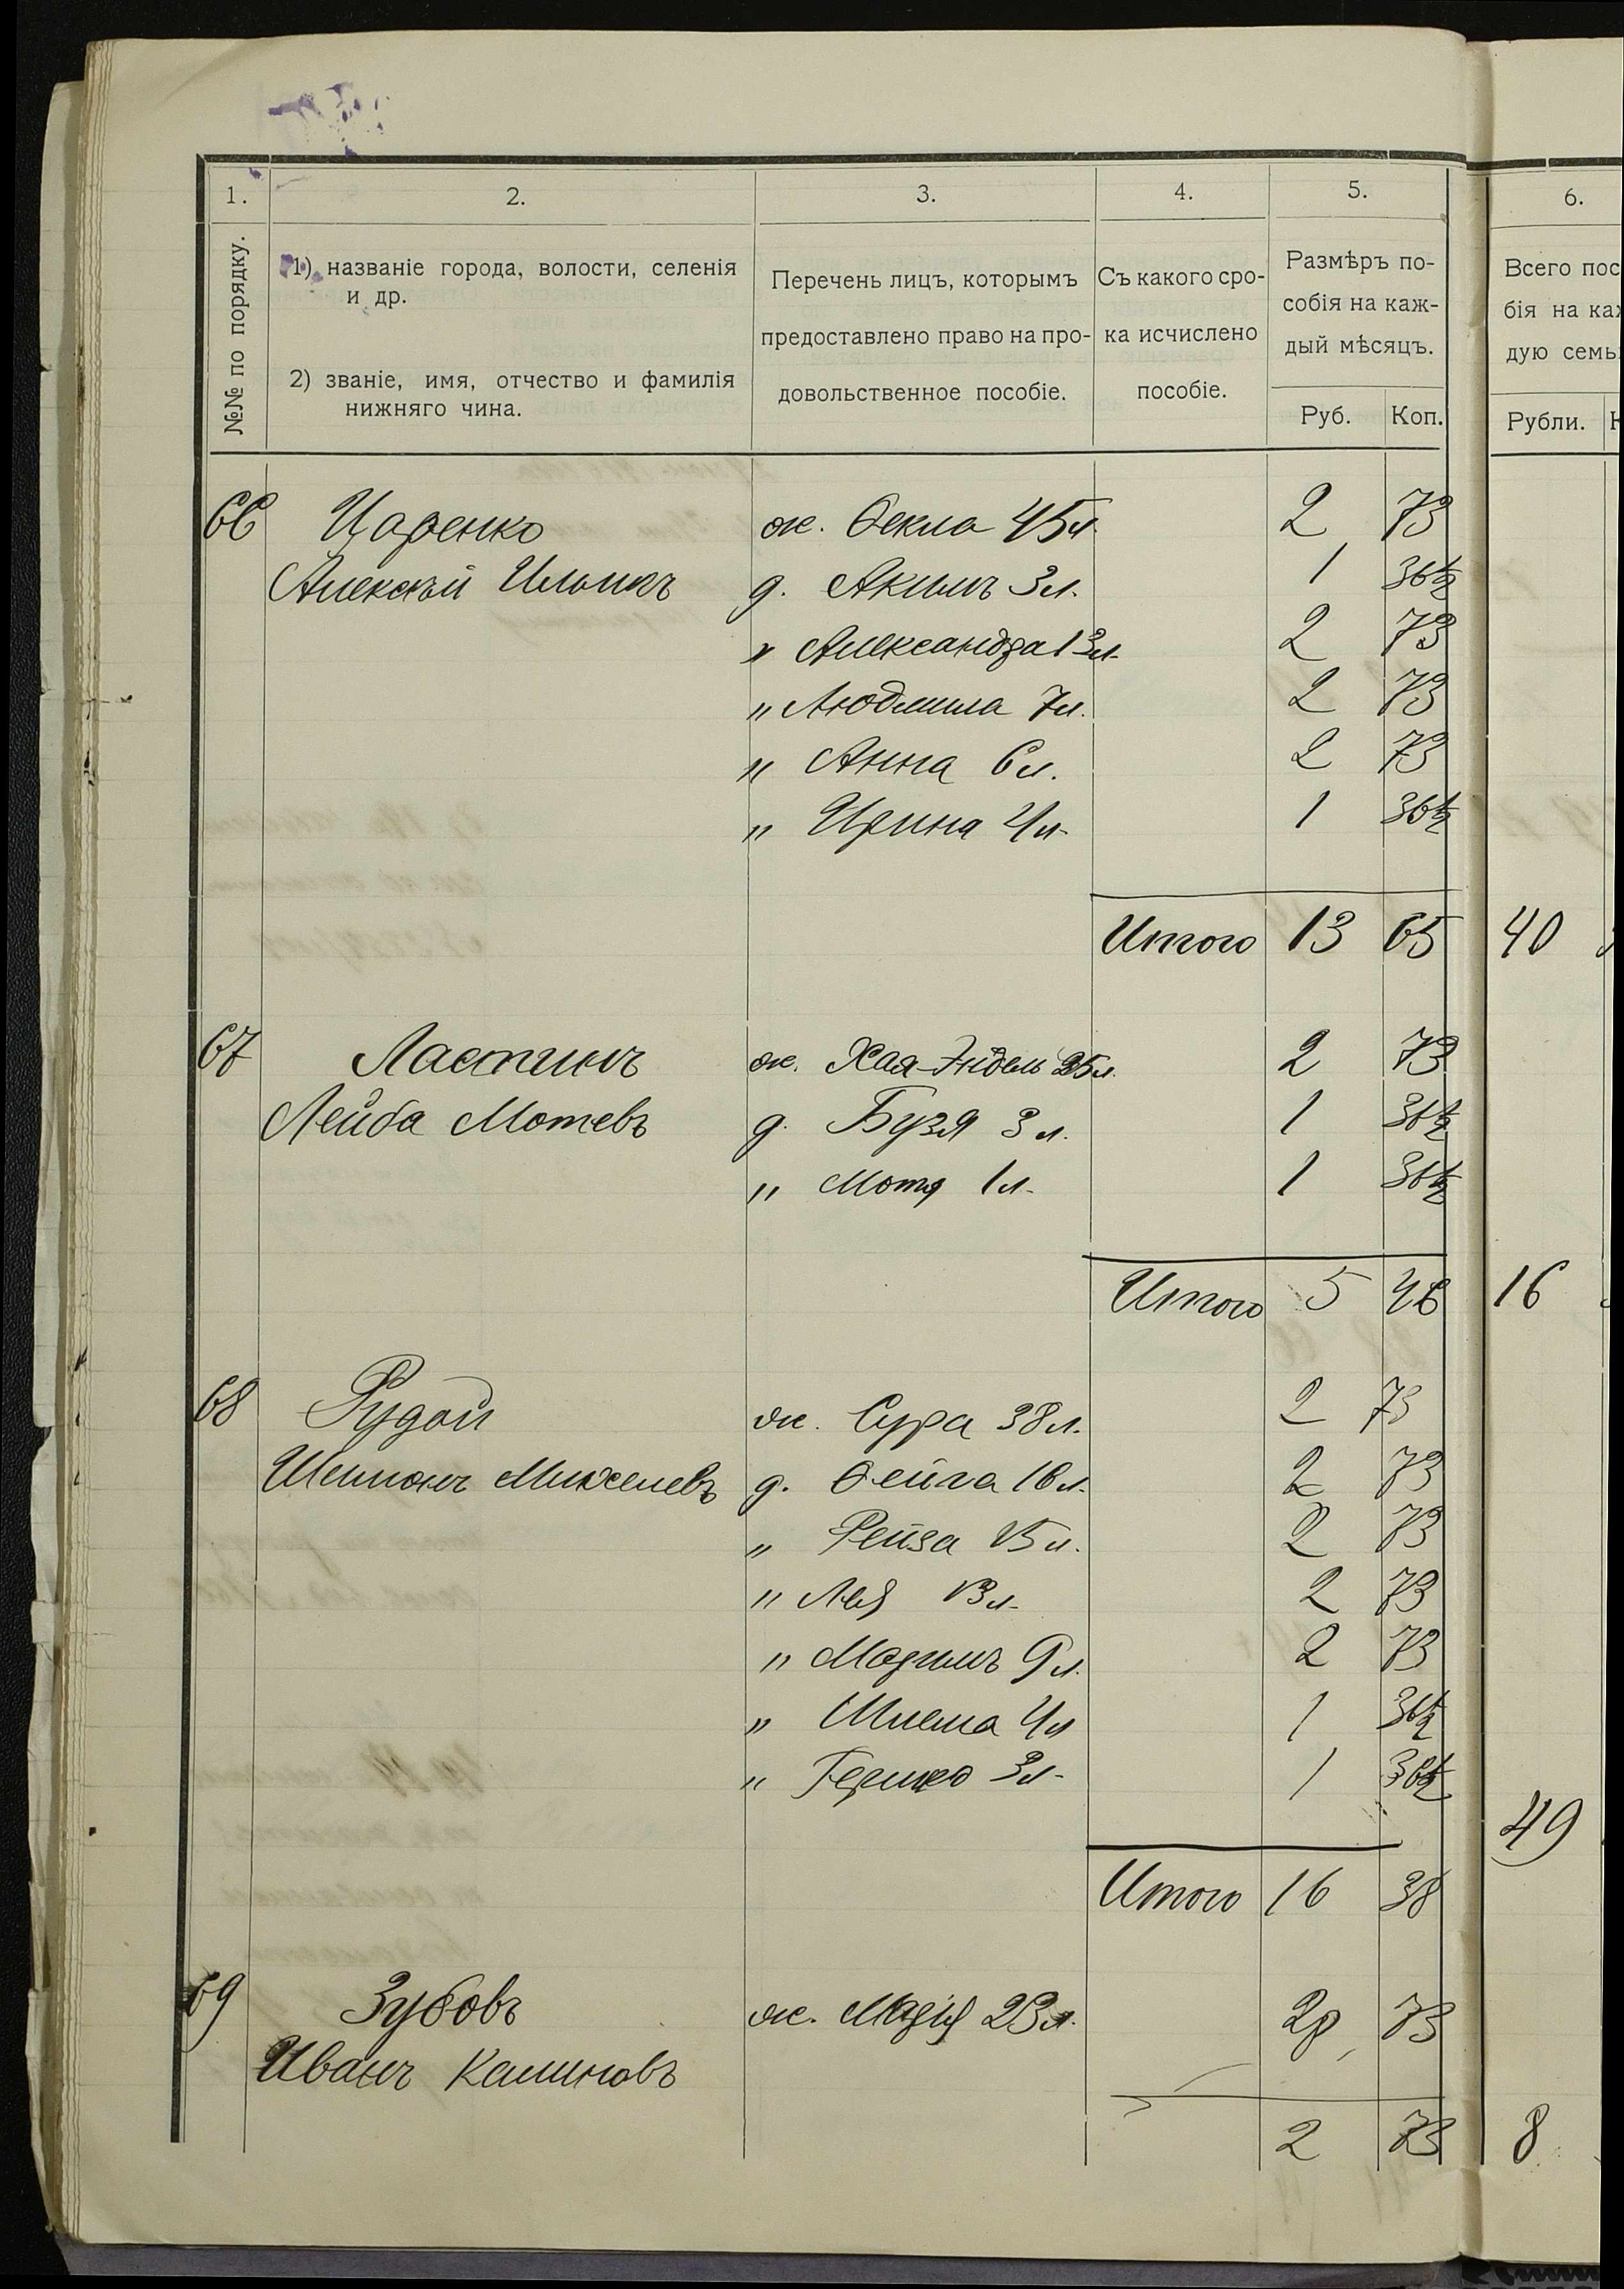 1. 2. 3. 4. 5. 6.
№№ по порядку.
1) названіе города, волости, селенія
и др.
2) званіе, имя, отчество и фамилія
нижняго чина.
Перечень лицъ, которымъ
предоставлено право на про-
довольственное пособіе.
Съ какого сро-
ка исчислено
пособіе.
Размѣръ по-
собія на каж-
дый мѣсяцъ.
Руб. Коп.
Всего пос
бія на ка
дую семь
Рубли.
66 Царенко ж. Ѳекла 45 л. 2 73
Алексѣй Ильинъ д. Акимъ 3 л. 1 36½
" Александра 13 л. 2 73
" Людмила 7 л. 2 73
" Анна 6 л. 2 73
" Ирина 4 л. 1 36½
Итого 13 65 40
67 Ластинъ ж. Хая-Эйдель 25 л. 2 73
Лейба Мотевъ д. Бузя 3 л. 1 36½
" Мотя 1 л. 1 36½
Итого 5 46 16
68 Рудой ж. Сура 38 л. 2 73
Шлиома Михелевъ д. Ѳейга 16 л. 2 73
" Рейза 15 л. 2 73
" Лея 13 л. 2 73
" 9 л. 2 73
" Шлема 4 л 1 36½
" Гершко 3 л. 1 36½
49
Итого 16 38
69 Зубовъ ж. Марія 23 л. 2р 73
Иванъ Калиновъ
2 73 8